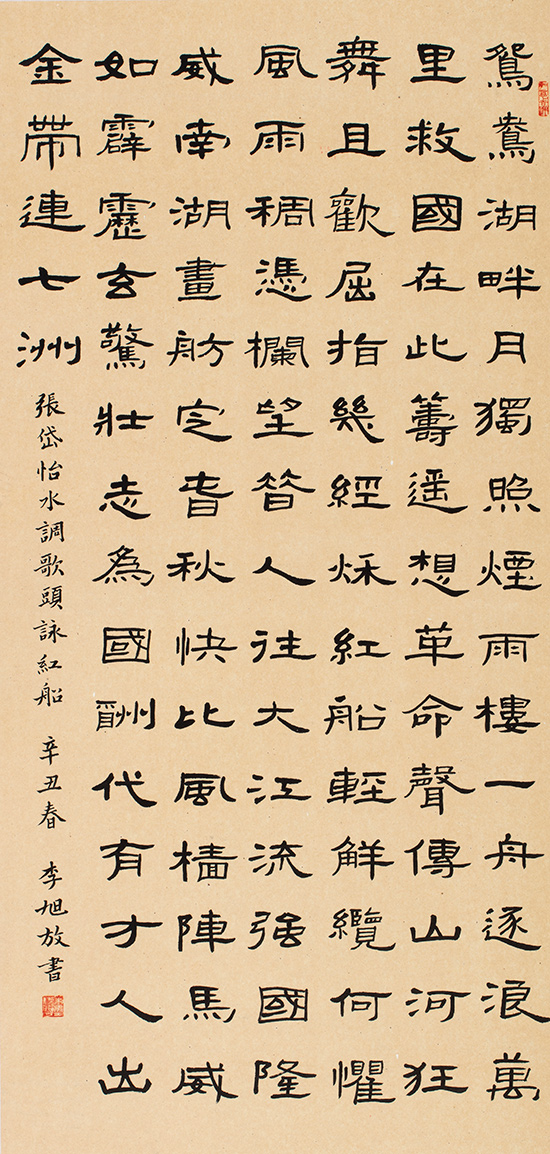 鴛鴦湖畔月獨照煙雨樓一舟逐浪萬
里救國在此籌遥想革命聲傳山河狂
舞且歡屈指幾經秋紅船輕解纜何懼
風雨稠憑欄望昔人往大江流强國隆
威南湖畫舫定春秋快比風檣陣馬威
如霹靂玄驚壯志為國酬代有才人出
金帶連七洲
張岱怡水調歌頭詠紅船 辛丑春 李旭放書